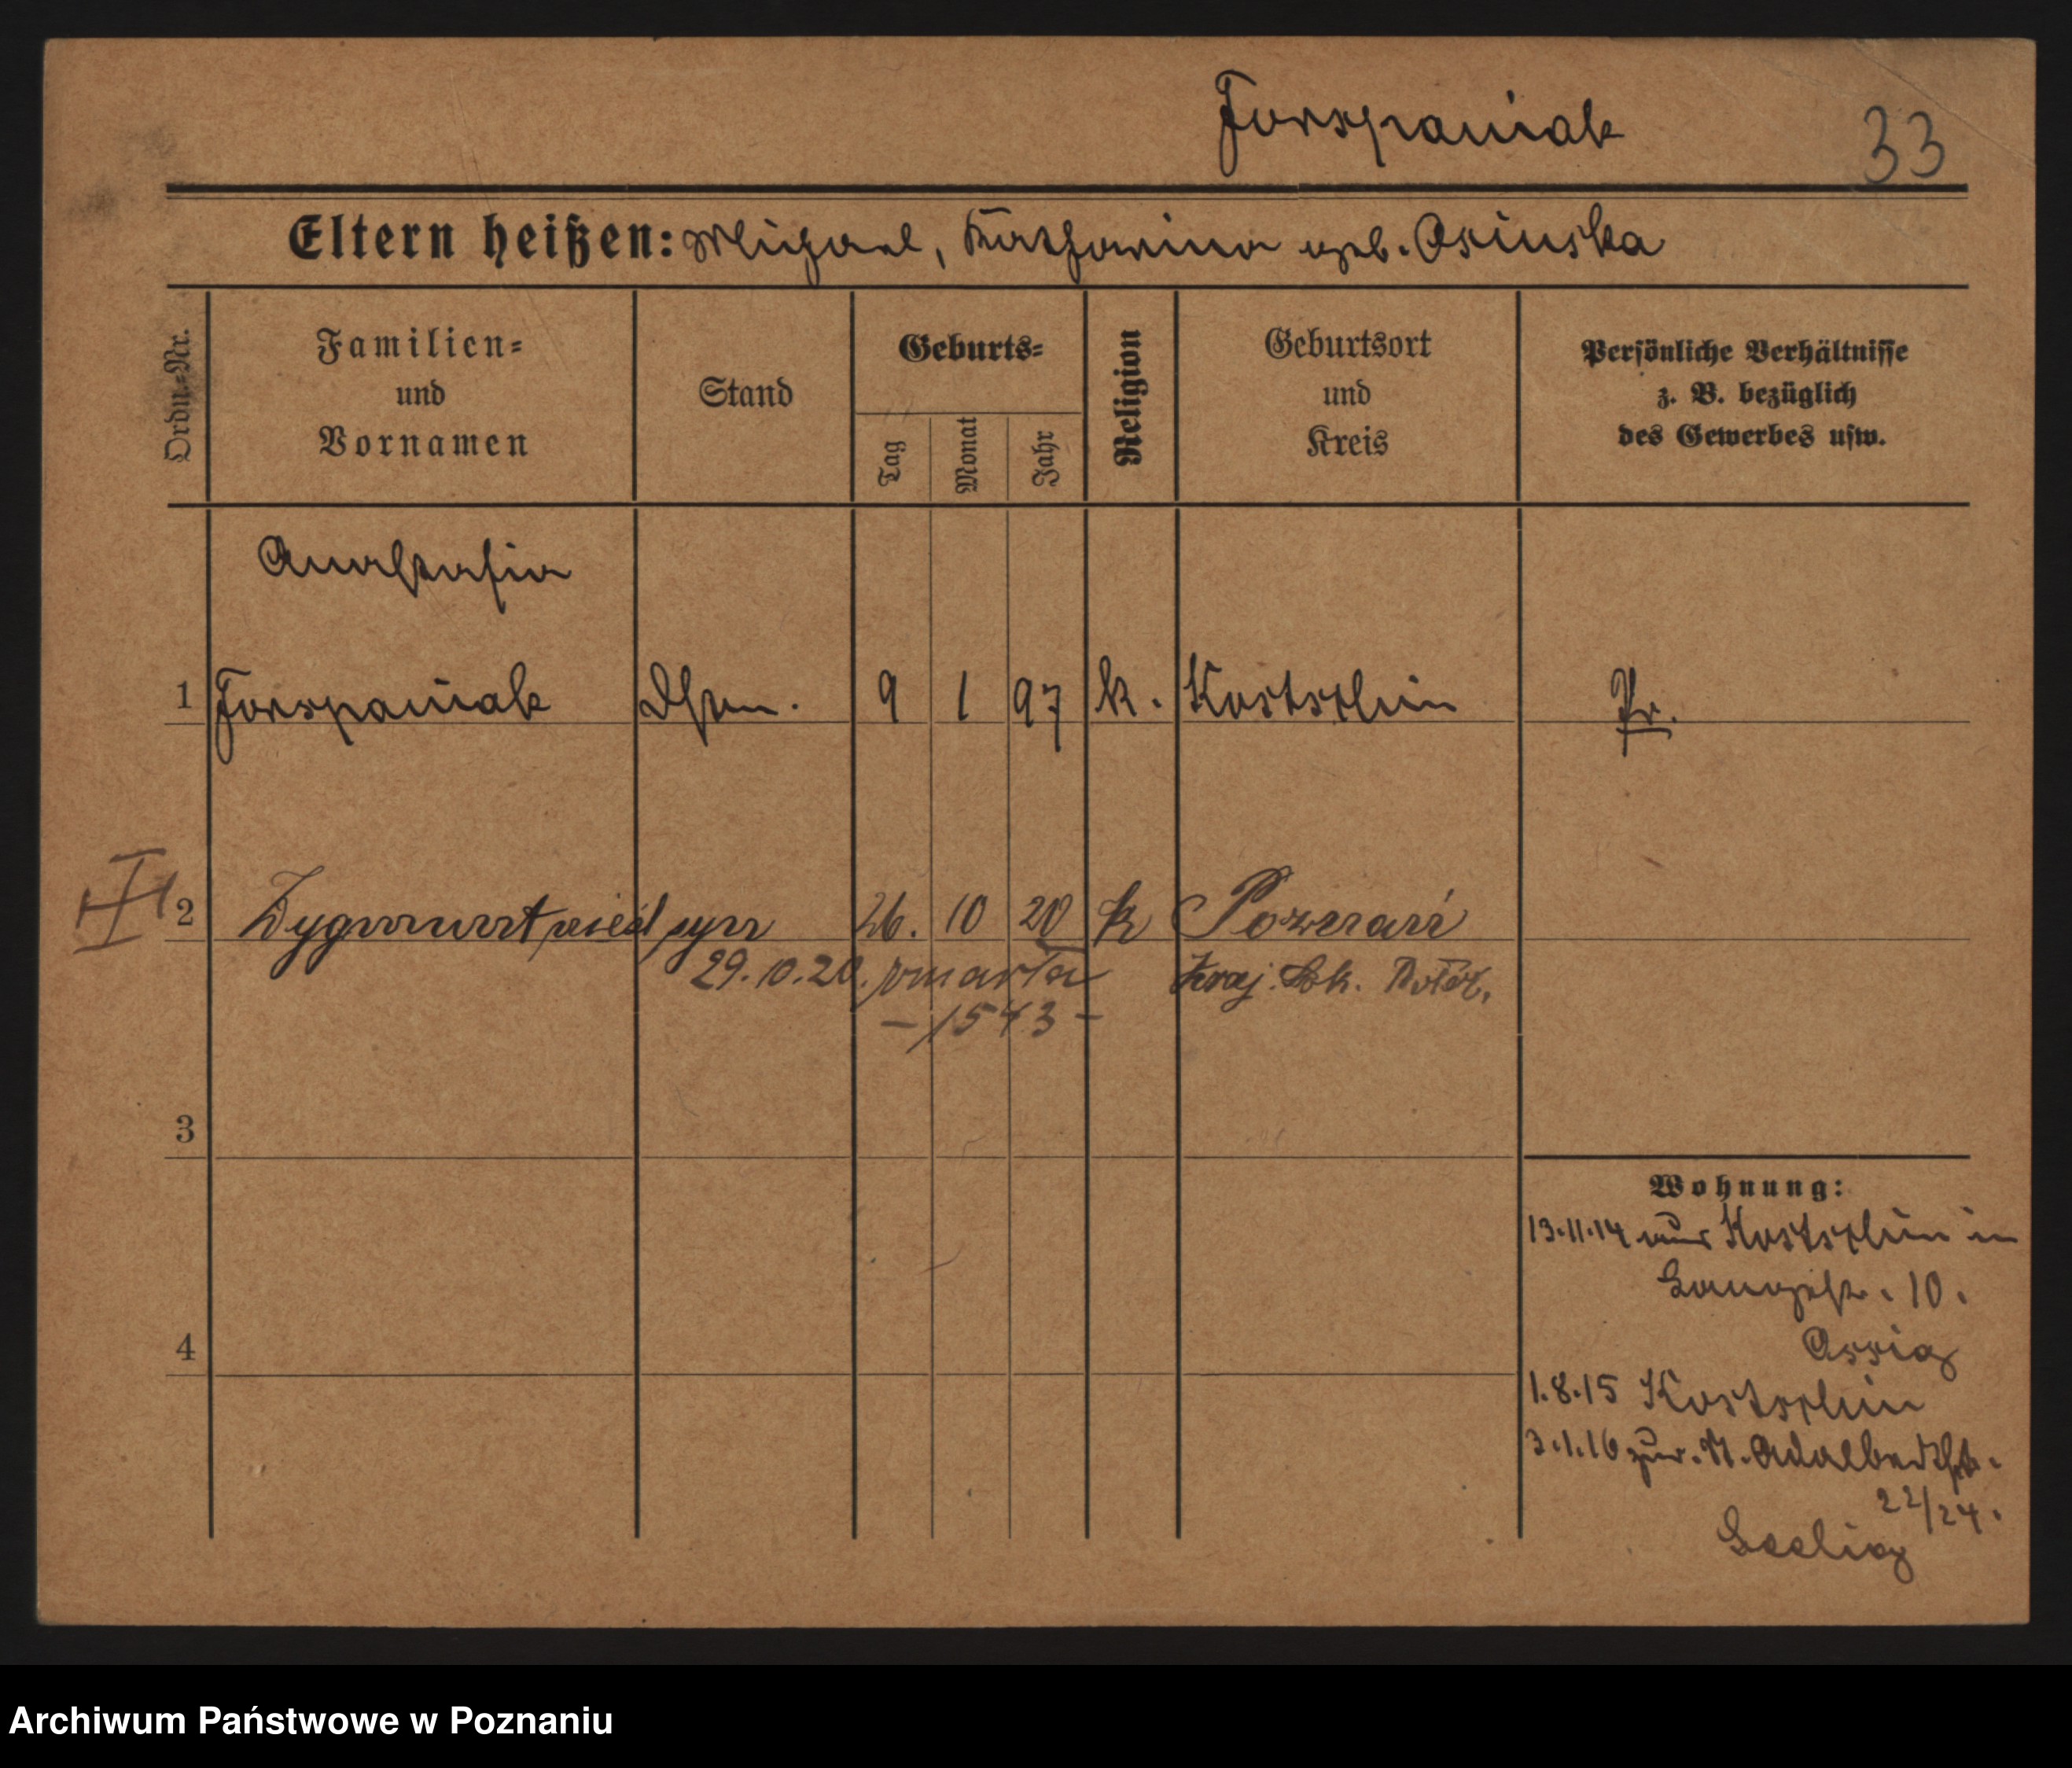 Forszpaniak
33
Eltern heißen: Michael, Katharina geb. Osinska
Ordn.-Nr.
Familien- und Vornamen
Stand
Geburts-
Tag
Monat
Jahr
Religion
Geburtsort und Kreis
Persönliche Verhältnisse z. B. bezüglich des Gewerbes usw.
Anastasia
1 Forszpaniak Dstm. 9 1 97 k. Kostschin Pr.
2 Zygmunt nieśl syn 26. 10 20 k Poznań
29.10.20. zmarła Kraj.
- 1543 -
3
Wohnung:
13.11.14 aus Kostschin in
Langestr. 10.
4
Assig
1.8.15 Kostschin
3.1.16 zur. St. Adalbertstr.
22/24.
Seelig
Archiwum Państwowe w Poznaniu